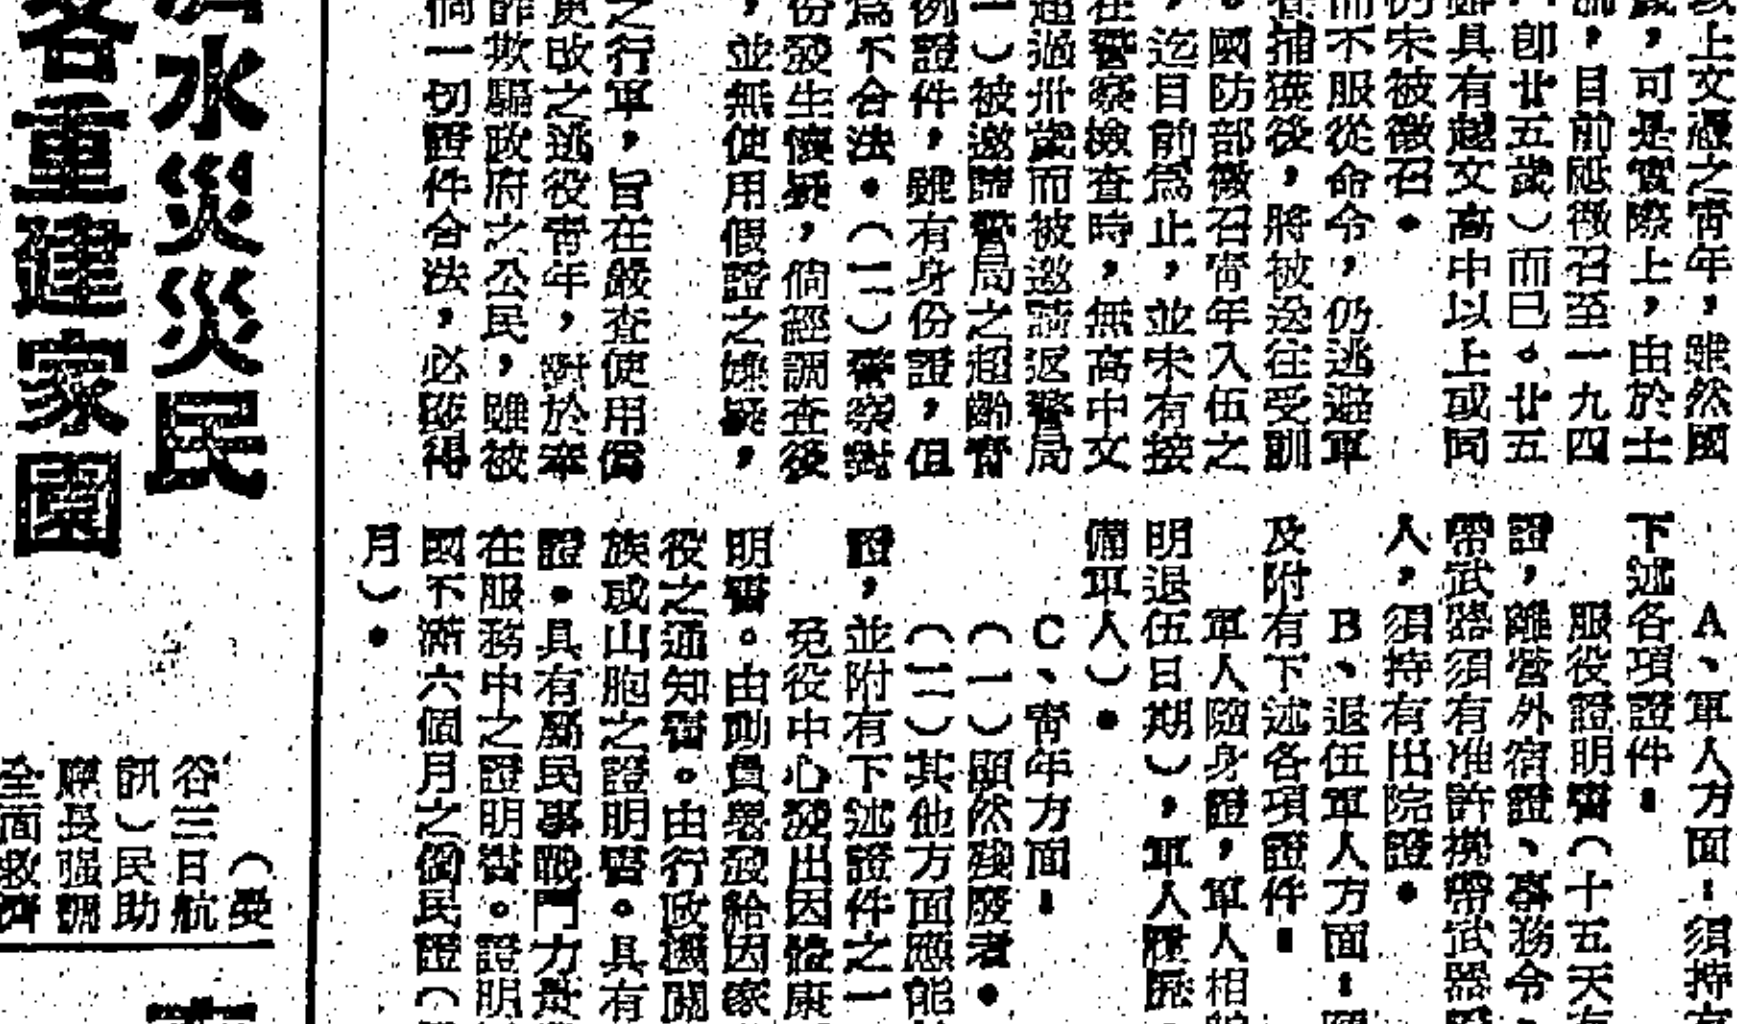 上文憑之青年，雖然國
，可是實際上，由於士
，目前祗徵召至一九四
卽廿五歲）而已。廿五
具有越文高中以上或同
仍未被徵召。
而不服從命令，仍逃避軍
捕獲後，將被送往受訓
。國防部徵召青年入伍之
，迄目前爲止，並未有接
在警察檢查時，無高中文
超過卅歲而被邀請返警局
一）被邀歸警局之超齡青
例證件，雖有身份證，但
爲不合法。（二）警察對
份發生懷疑，倘經調查後
，並無使用假證之嫌疑，
之行軍，旨在嚴查使用僞
更改之逃役青年，對於奉
詐欺騙政府之公民，雖被
倘一切證件合法，必獲得
A、軍人方面：須持有
下述各項證件：
服役證明書（十五天有
證，離營外宿證、事務令、
帶武器須有准許携帶武器
人，須持有出院證。
B、退伍軍人方面：
及附有下述各項證件：
軍人隨身證，軍人相
明退伍日期），軍人履歷
備軍人）。
C、青年方面：
（一）顯然殘廢者。
（二）其他方面應能
證，並附有下述證件之一
免役中心發出因健康
明書。由動員署發給因家
役之通知書。由行政機關
族或山胞之證明書。具有
證。具有屬民事戰鬥力量
在服務中之證明書。證明
國不滿六個月之僑民證（
月）。
水災災民
重建家園
（憂
谷三日航
訊）民助
廳長强調
全面救濟